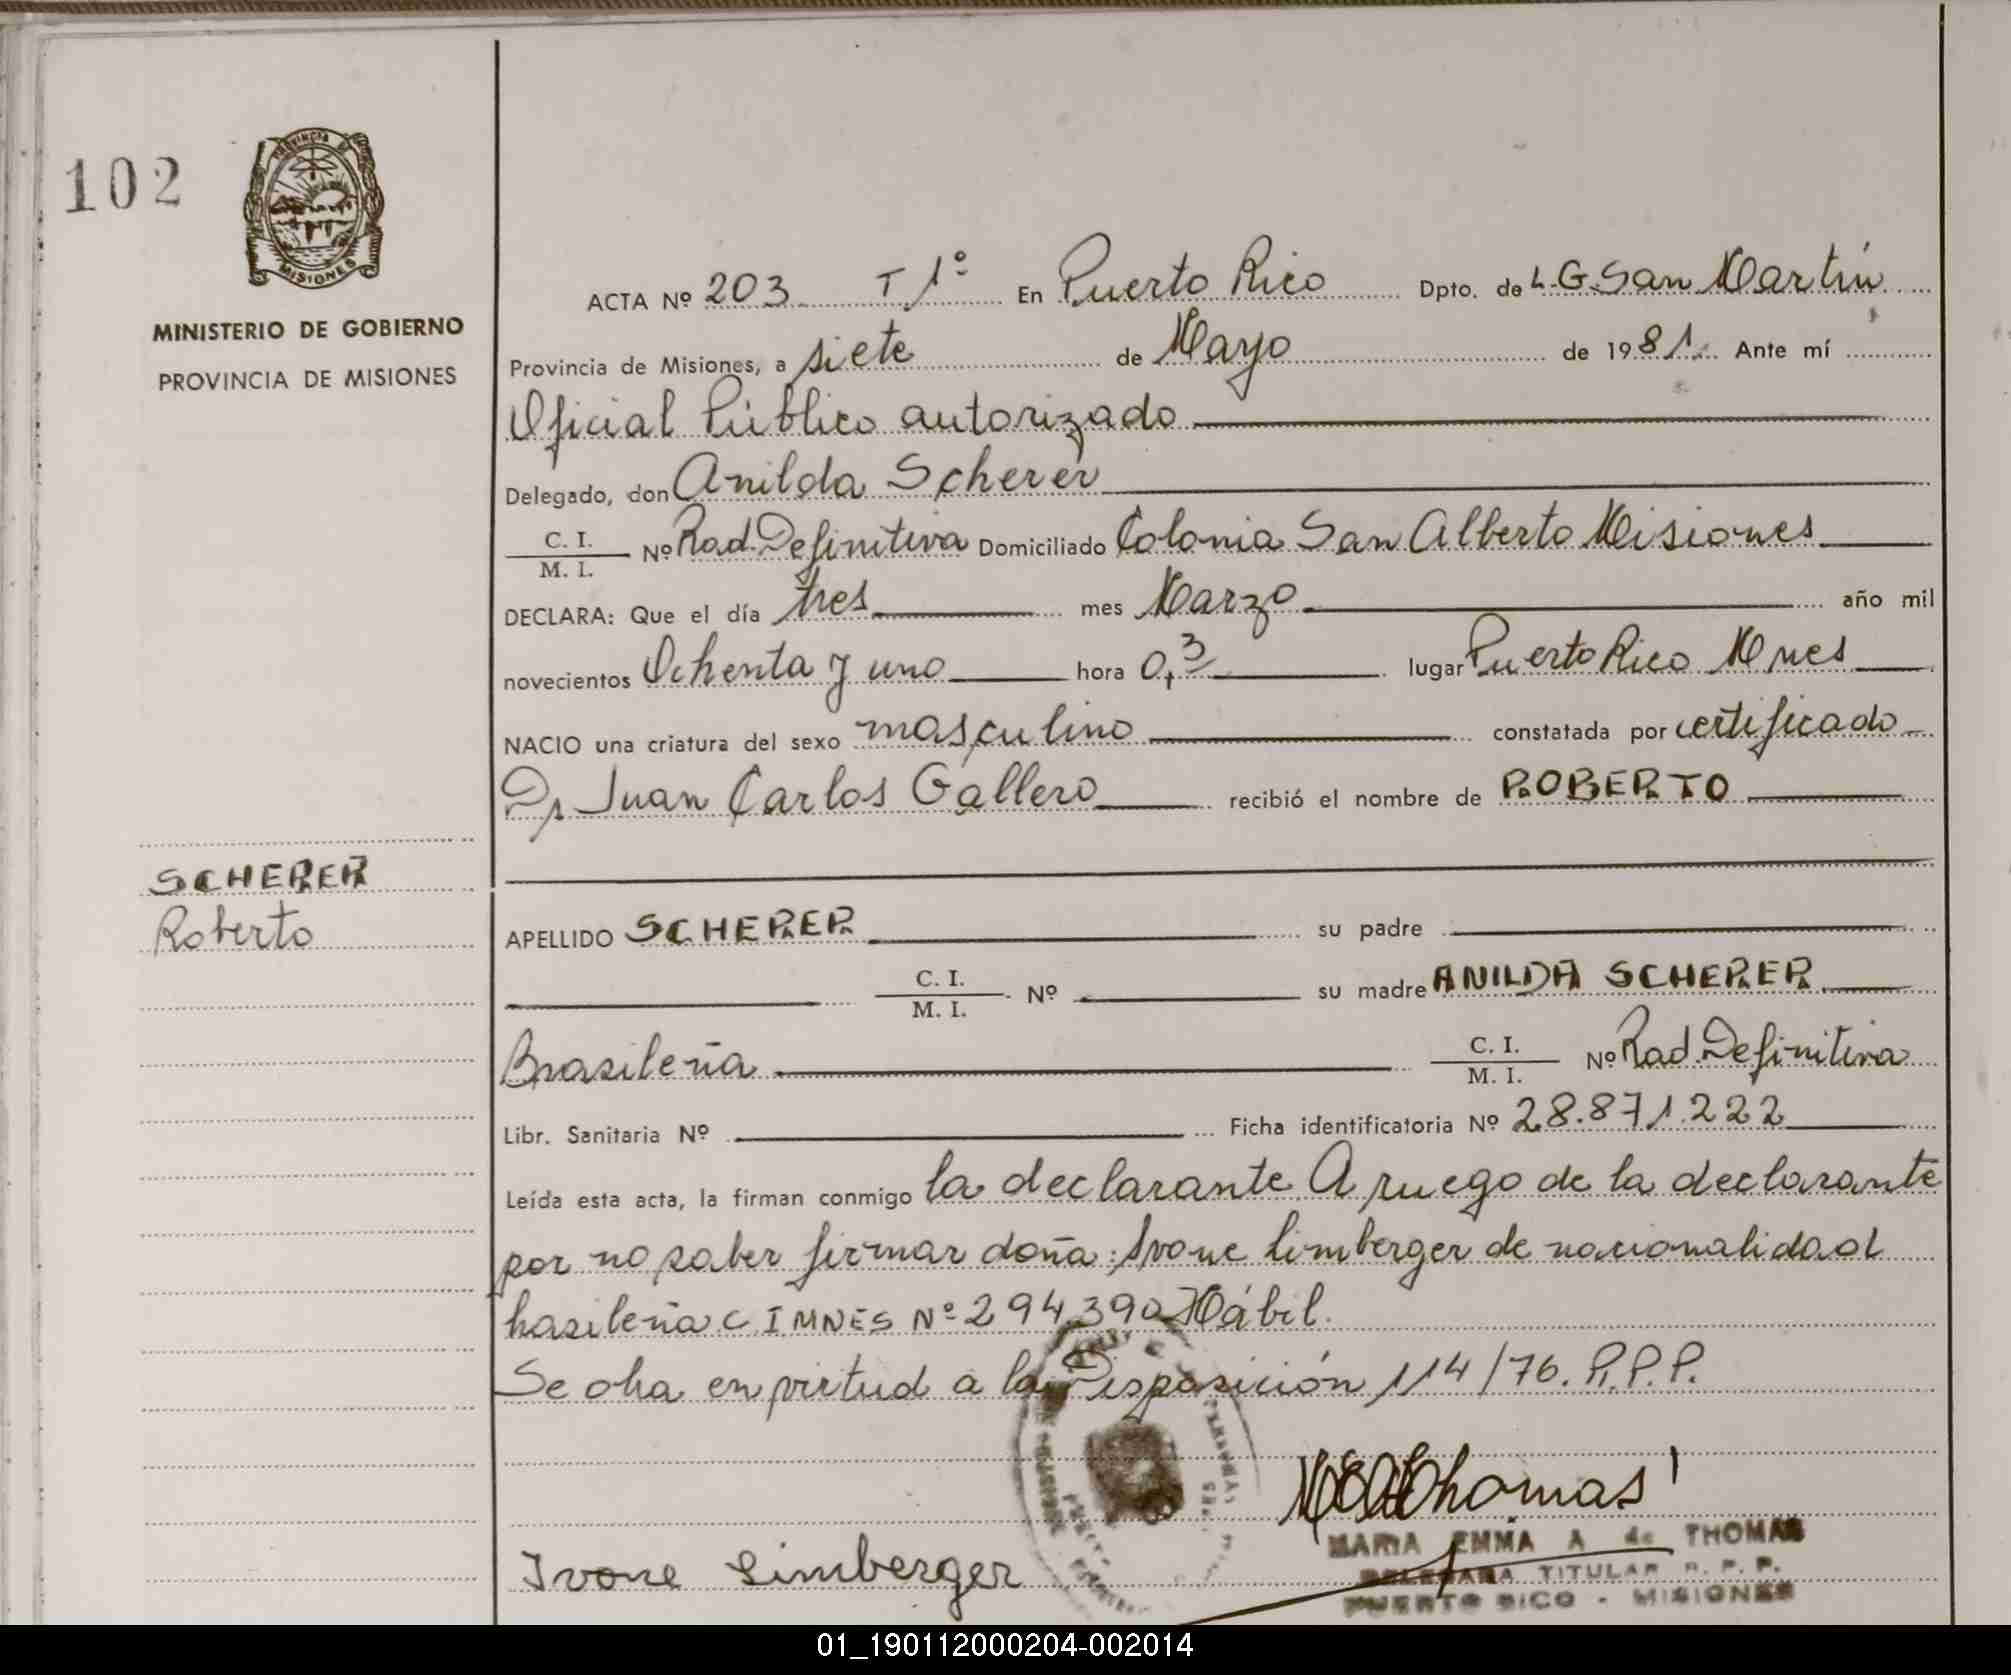 102
PROVINCIA DE
MISIONES
MINISTERIO DE GOBIERNO
PROVINCIA DE MISIONES
SCHERER
Roberto
ACTA Nº 203 T 1º En Puerto Rico Dpto. de L.G.San Martín
Provincia de Misiones, a siete de Mayo de 1981 Ante mí
Oficial Público autorizado
Delegado, don Anilda Scherer
C. I. / M. I. Nº Rad.Definitiva Domiciliado Colonia San Alberto Misiones
DECLARA: Que el día tres mes Marzo año mil
novecientos Ochenta y uno hora 0,3 lugar Puerto Rico Mnes
NACIO una criatura del sexo masculino constatada por certificado
Dr Juan Carlos Gallero recibió el nombre de ROBERTO
APELLIDO SCHERER su padre
C. I. / M. I. Nº su madre ANILDA SCHERER
Brasileña C. I. / M. I. Nº Rad.Definitiva
Libr. Sanitaria Nº Ficha identificatoria Nº 28.871.222
Leída esta acta, la firman conmigo la declarante. A ruego de la declarante
por no saber firmar doña: Ivone Limberger de nacionalidad
brasileña C I MNES Nº 294.390 Hábil.
Se oha en virtud a la Disposición 114/76. P.P.P.
Ivone Limberger
Thomas
MARIA EMMA A de THOMAS
DELEGADA TITULAR R. P. P.
PUERTO RICO - MISIONES
01_190112000204-002014